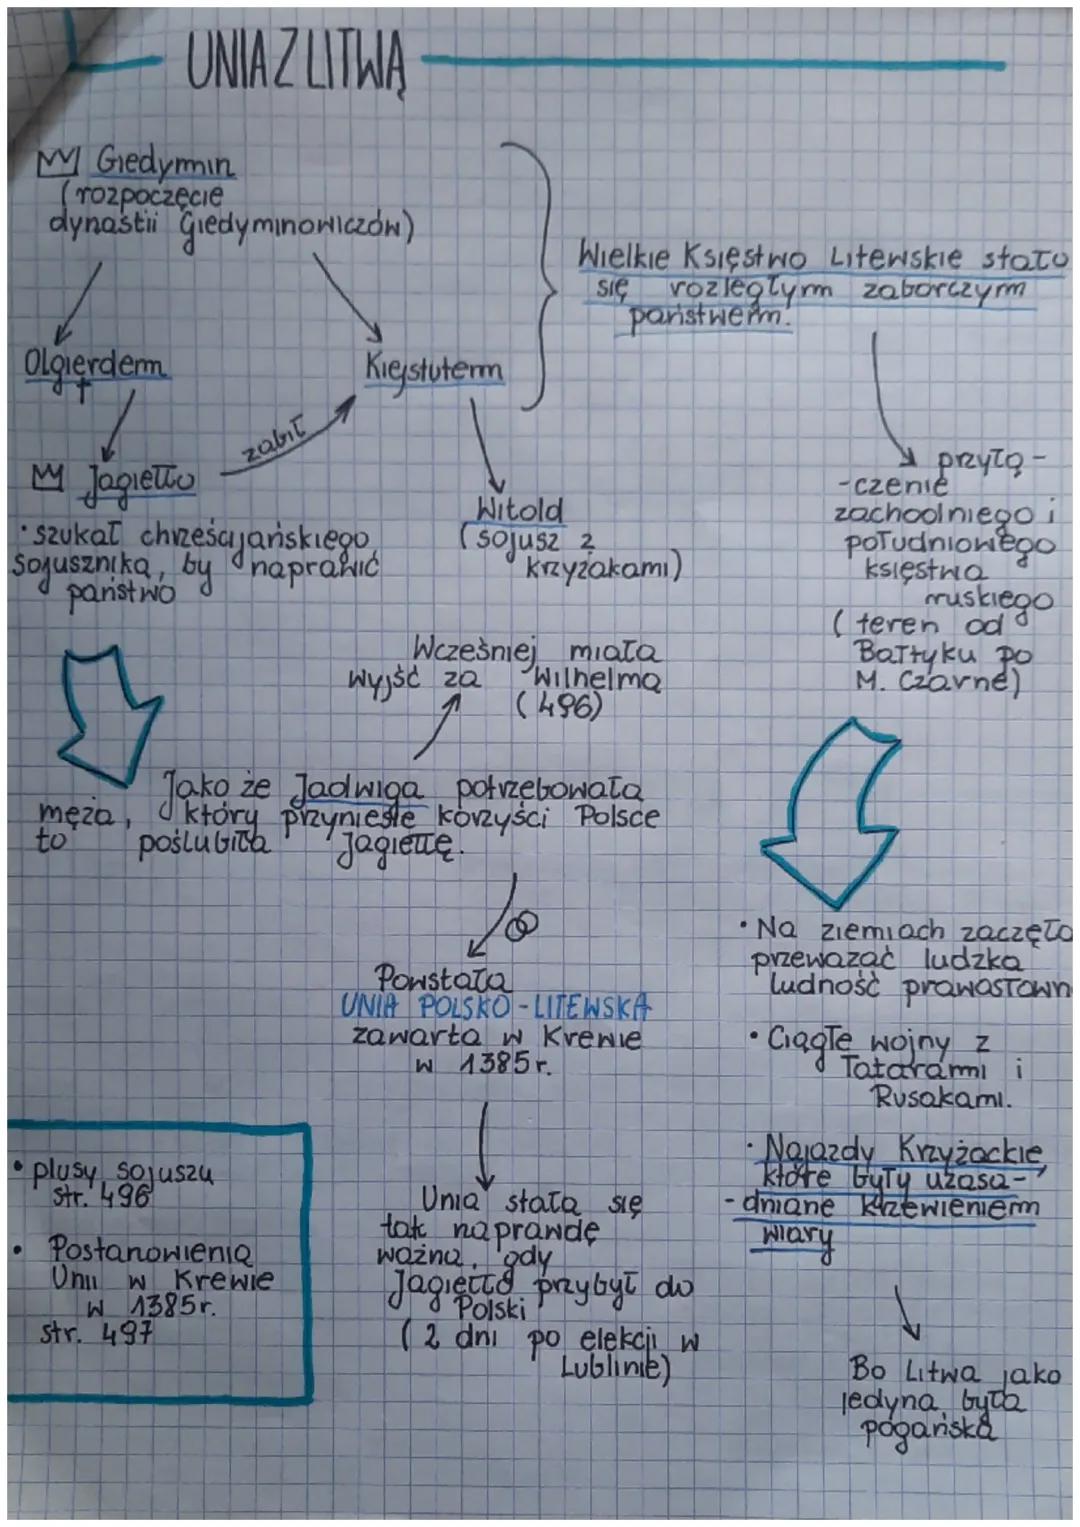 UNIA Z LITWĄ
Giedymin
(rozpoczęcie
dynastii Giedyminowiczów)
Wielkie Księstwo Litewskie stało
się rozległym zaborczym
państwem.
Olgierdem
Kiejstutem
zabił
Jagiełło
• szukał chrześcijańskiego
sojusznika, by naprawić
państwo
Witold
(sojusz z
krzyżakami)
przyłą-
-czenie
zachodniego i
południowego
księstwa
ruskiego
(teren od
Bałtyku po
M. Czarne)
Wcześniej miała
wyjść za Wilhelma
(496)
Jako że Jadwiga potrzebowała
męża, który przyniesie korzyści Polsce
to poślubiła Jagiełłę.
Powstała
UNIA POLSKO-LITEWSKA
zawarta w Krewie
w 1385r.
Unia stała się
tak naprawdę
ważna, gdy
Jagiełło przybył do
Polski
(2 dni po elekcji w
Lublinie)
• Na ziemiach zaczęło
przeważać ludzka
ludność prawosłown
• Ciągłe wojny z
Tatarami i
Rusakami.
• Najazdy Krzyżackie,
które były uzasa-
-dniane krzewieniem
wiary
Bo Litwa jako
jedyna była
pogańska
• plusy sojuszu
str. 496
• Postanowienia
Unii w Krewie
w 1385r.
str. 497